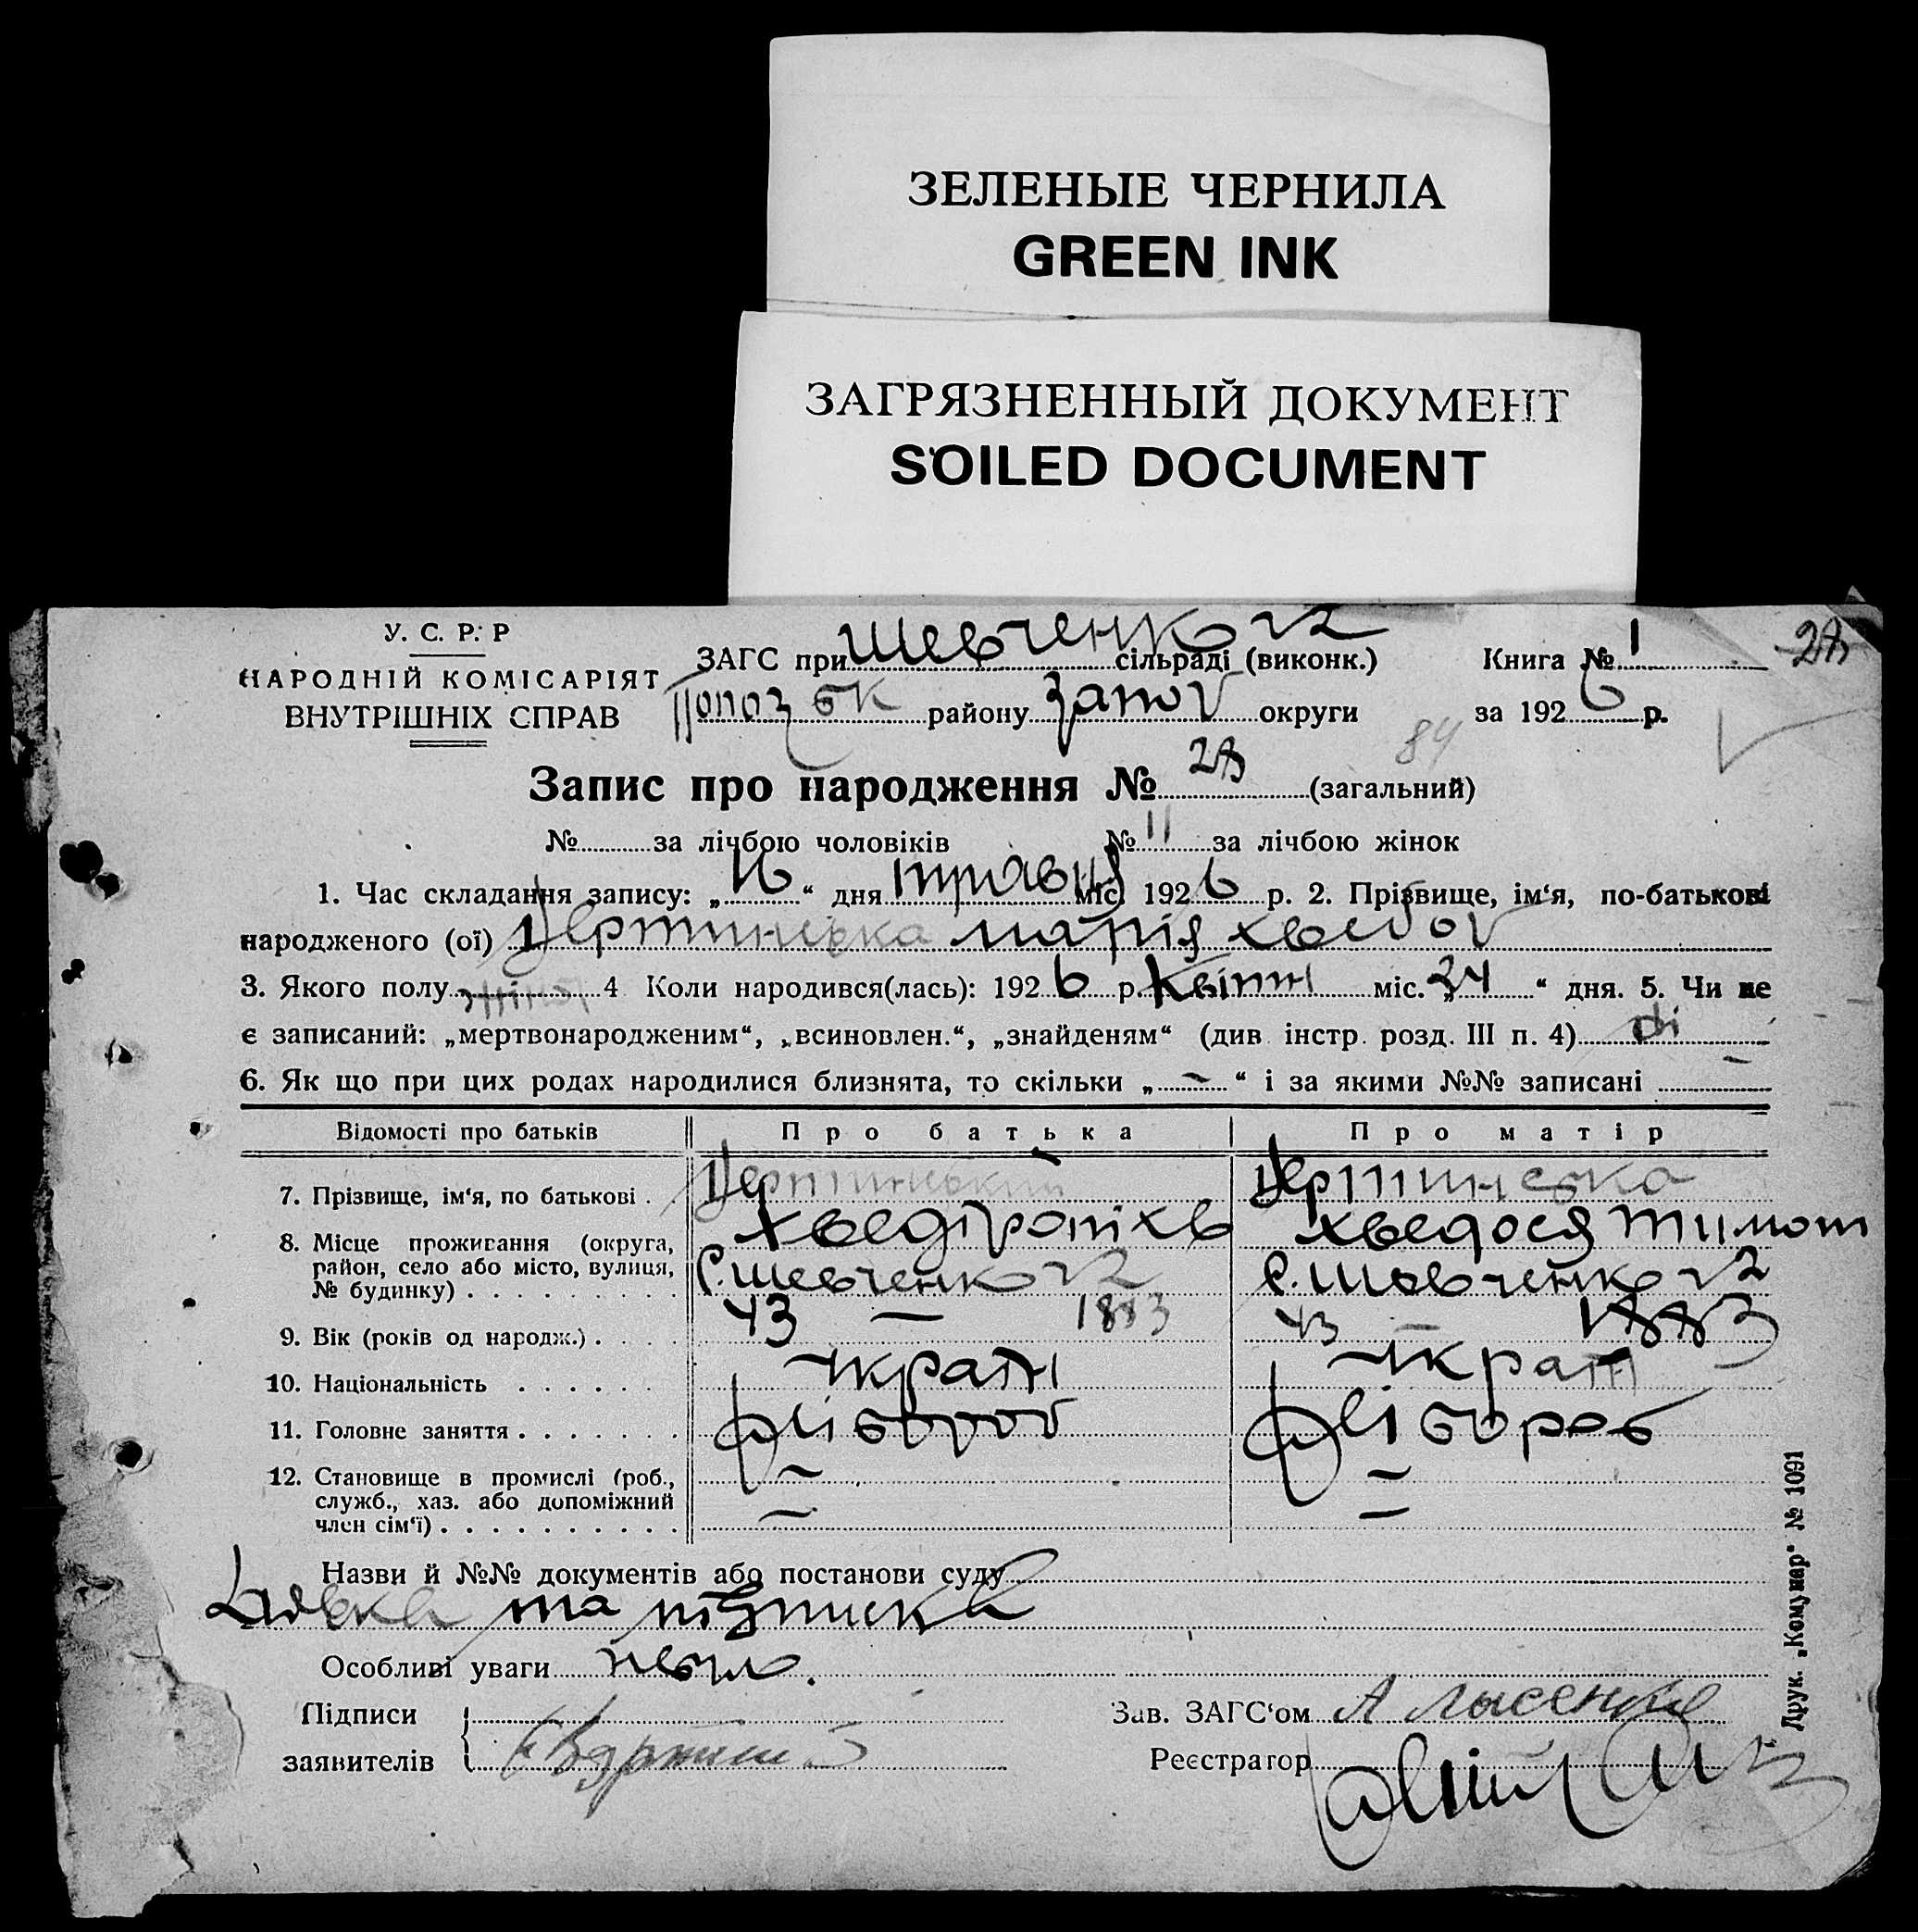 ЗЕЛЕНЫЕ ЧЕРНИЛА
GREEN INK
ЗАГРЯЗНЕННЫЙ ДОКУМЕНТ
SOILED DOCUMENT
У. С. Р. Р
НАРОДНІЙ КОМІСАРІЯТ
ВНУТРІШНІХ СПРАВ
ЗАГС при Шевченко сільраді (виконк.) Книга № 1 28
району Запоў округи за 1926 р.
84
Запис про народження № 28 (загальний)
№ за лічбою чоловіків № 11 за лічбою жінок
1. Час складання запису: „16“ дня травня міс. 1926 р. 2. Прізвище, ім‘я, по-батькові
народженого (ої) Марія
3. Якого полу жіноч 4 Коли народився(лась): 1926 р. Квітн міс. „24“ дня. 5. Чи не
є записаний: „мертвонародженим“, „всиновлен.“, „знайденям“ (див. інстр. розд. III п. 4) ні
6. Як що при цих родах народилися близнята, то скільки „—“ і за якими №№ записані —
Відомості про батьків Про батька Про матір
7. Прізвище, ім‘я, по батькові
8. Місце проживання (округа, Хведося Тимот
район, село або місто, вулиця, С. Шевченко С. Шевченко
№ будинку)
9. Вік (років од народж.) 43 — 1883 43 — 1883
10. Національність Україн Україн
11. Головне заняття хлібороб хлібороб
12. Становище в промислі (роб., — —
служб., хаз. або допоміжний
член сім‘ї) — —
Назви й №№ документів або постанови суду
та підписка
Особливі уваги нема.
Підписи Зав. ЗАГС‘ом А Лысенко
заявителів Реєстратор
Друк. „Комунар“ № 1091